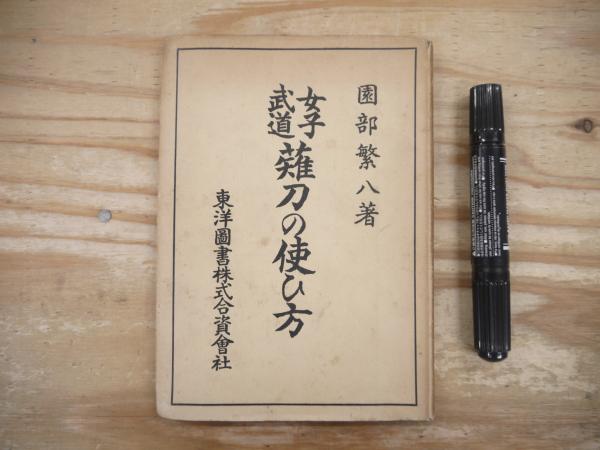 園部繁八著
女子武道 薙刀の使ひ方
東洋圖書株式合資會社